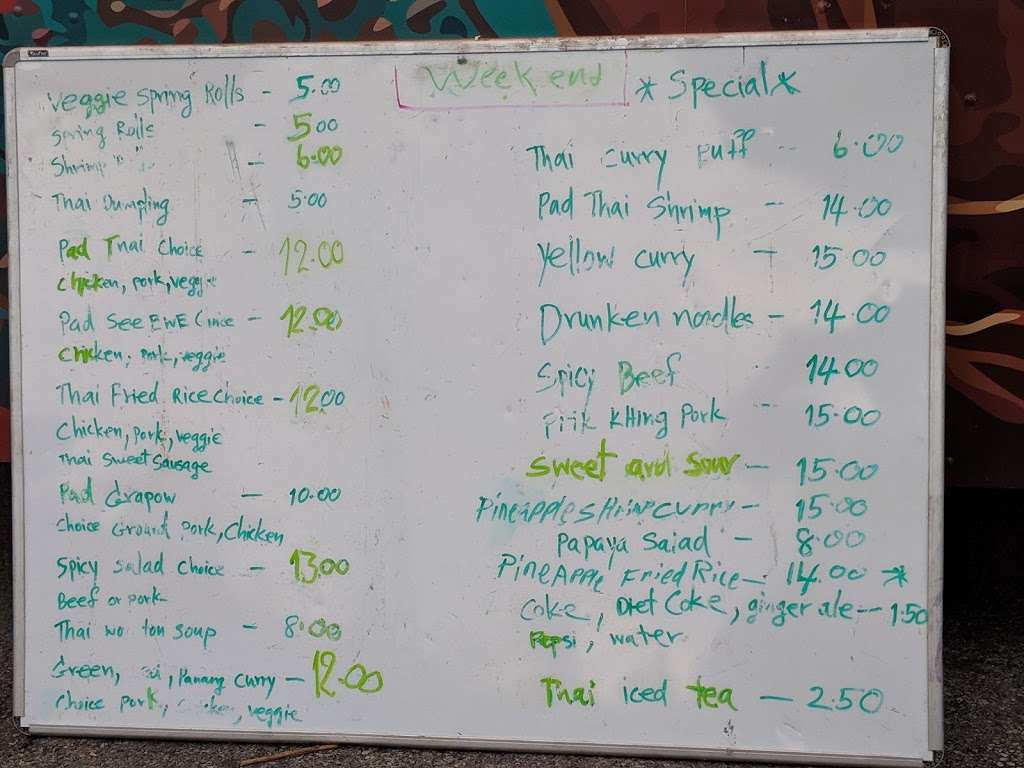 Veggie Spring Rolls - 5.00
Spring Rolls - 5.00
Shrimp " " - 6.00
Thai Dumpling - 5.00
Pad Thai Choice - 12.00
chicken, pork, veggie
Pad See EWE - 12.00
chicken, pork, veggie
Thai Fried Rice choice - 12.00
Chicken, pork, veggie
Thai Sweet Sausage
Pad Grapow - 10.00
choice Ground pork, Chicken
Spicy salad choice - 13.00
Beef or pork
Thai wo ton soup - 8.00
Green, Panang curry - 12.00
choice pork, veggie
Weekend * Special *
Thai curry Puff - 6.00
Pad Thai Shrimp - 14.00
Yellow curry - 15.00
Drunken noodles - 14.00
Spicy Beef 14.00
Prik KHing Pork - 15.00
Sweet and Sour - 15.00
Pineapple SHrimp curry - 15.00
Papaya Salad - 8.00
PineAPPle Fried Rice - 14.00 *
Coke, Diet Coke, ginger ale - 1.50
Pepsi, water
Thai iced tea - 2.50